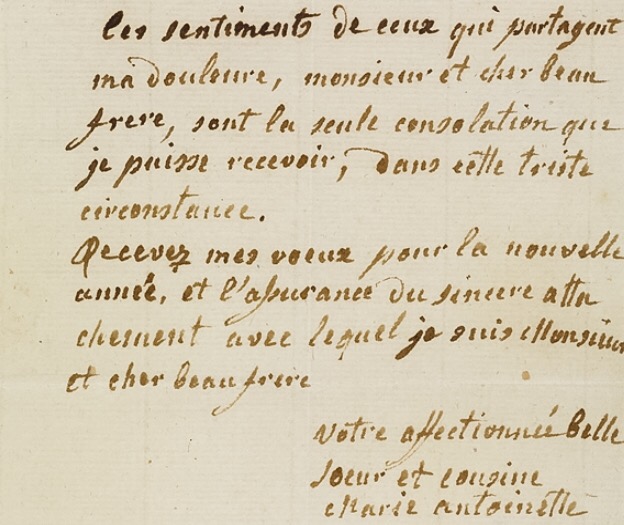 les sentiments de ceux qui partagent
ma douleure, monsieur et cher beau
frere, sont la seule consolation que
je puisse recevoir, dans cette triste
circonstance.
Recevez mes voeux pour la nouvelle
année, et l'assurance du sincere atta
chement avec lequel je suis Monsieur
et cher beau frere
votre affectionnée belle
soeur et cousine
Marie antoinette